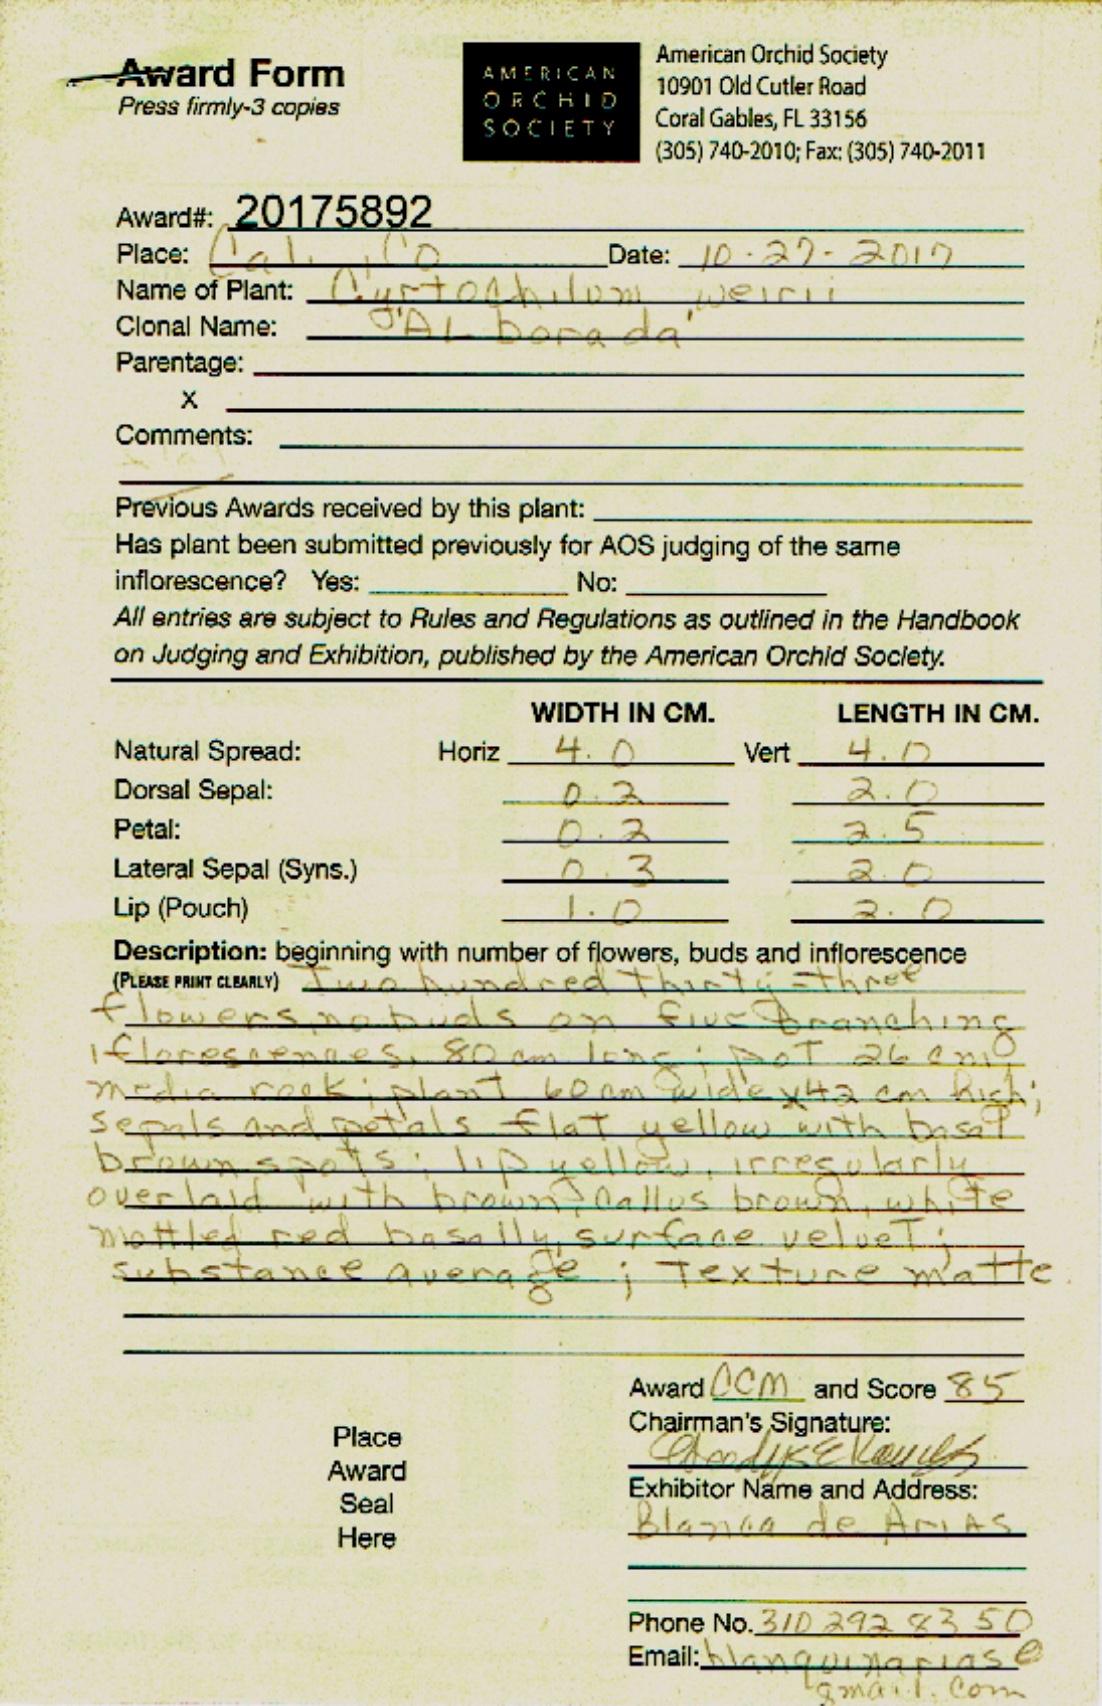 Award Form
Press firmly-3 copies
AMERICAN
ORCHID
SOCIETY
American Orchid Society
10901 Old Cutler Road
Coral Gables, FL 33156
(305) 740-2010; Fax: (305) 740-2011
Award#: 20175892
Place: Cali, CO Date: 10-27-2017
Name of Plant: Cyrtochilum weirii
Clonal Name: 'ALborada'
Parentage:
X
Comments:
Previous Awards received by this plant:
Has plant been submitted previously for AOS judging of the same
inflorescence? Yes: No:
All entries are subject to Rules and Regulations as outlined in the Handbook
on Judging and Exhibition, published by the American Orchid Society.
WIDTH IN CM. LENGTH IN CM.
Natural Spread: Horiz 4.0 Vert 4.0
Dorsal Sepal: 0.2 2.0
Petal: 0.2 2.5
Lateral Sepal (Syns.) 0.3 2.0
Lip (Pouch) 1.0 2.0
Description: beginning with number of flowers, buds and inflorescence
(PLEASE PRINT CLEARLY) Two hundred thirty-three
flowers, no buds on five branching
iflorescences, 80 cm long; pot 26 cm;
media rock; plant 60 cm wide x 42 cm high;
sepals and petals flat yellow with basal
brown spots; lip yellow, irregularly
overlaid with brown; callus brown, white
mottled red basally, surface velvet;
substance average; texture matte
Award CCM and Score 85
Chairman's Signature:
Place
Award
Seal
Here
Exhibitor Name and Address:
Blanca de Arias
Phone No. 310 292 83 50
Email: blanquinarias@
gmail.com